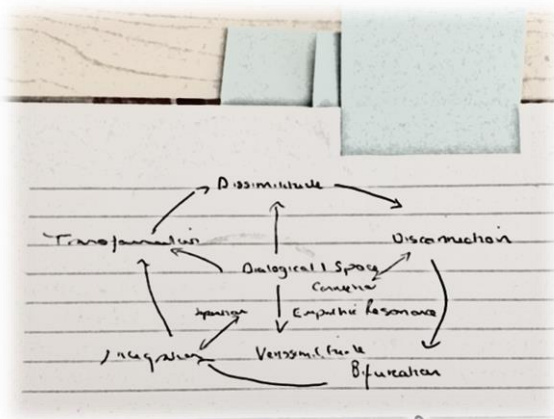 Dissimilitude
Transformation
Disconnection
Dialogical Space
Connection
Separation
Empathic Resonance
Integration
Verissimilitude
Bifurcation